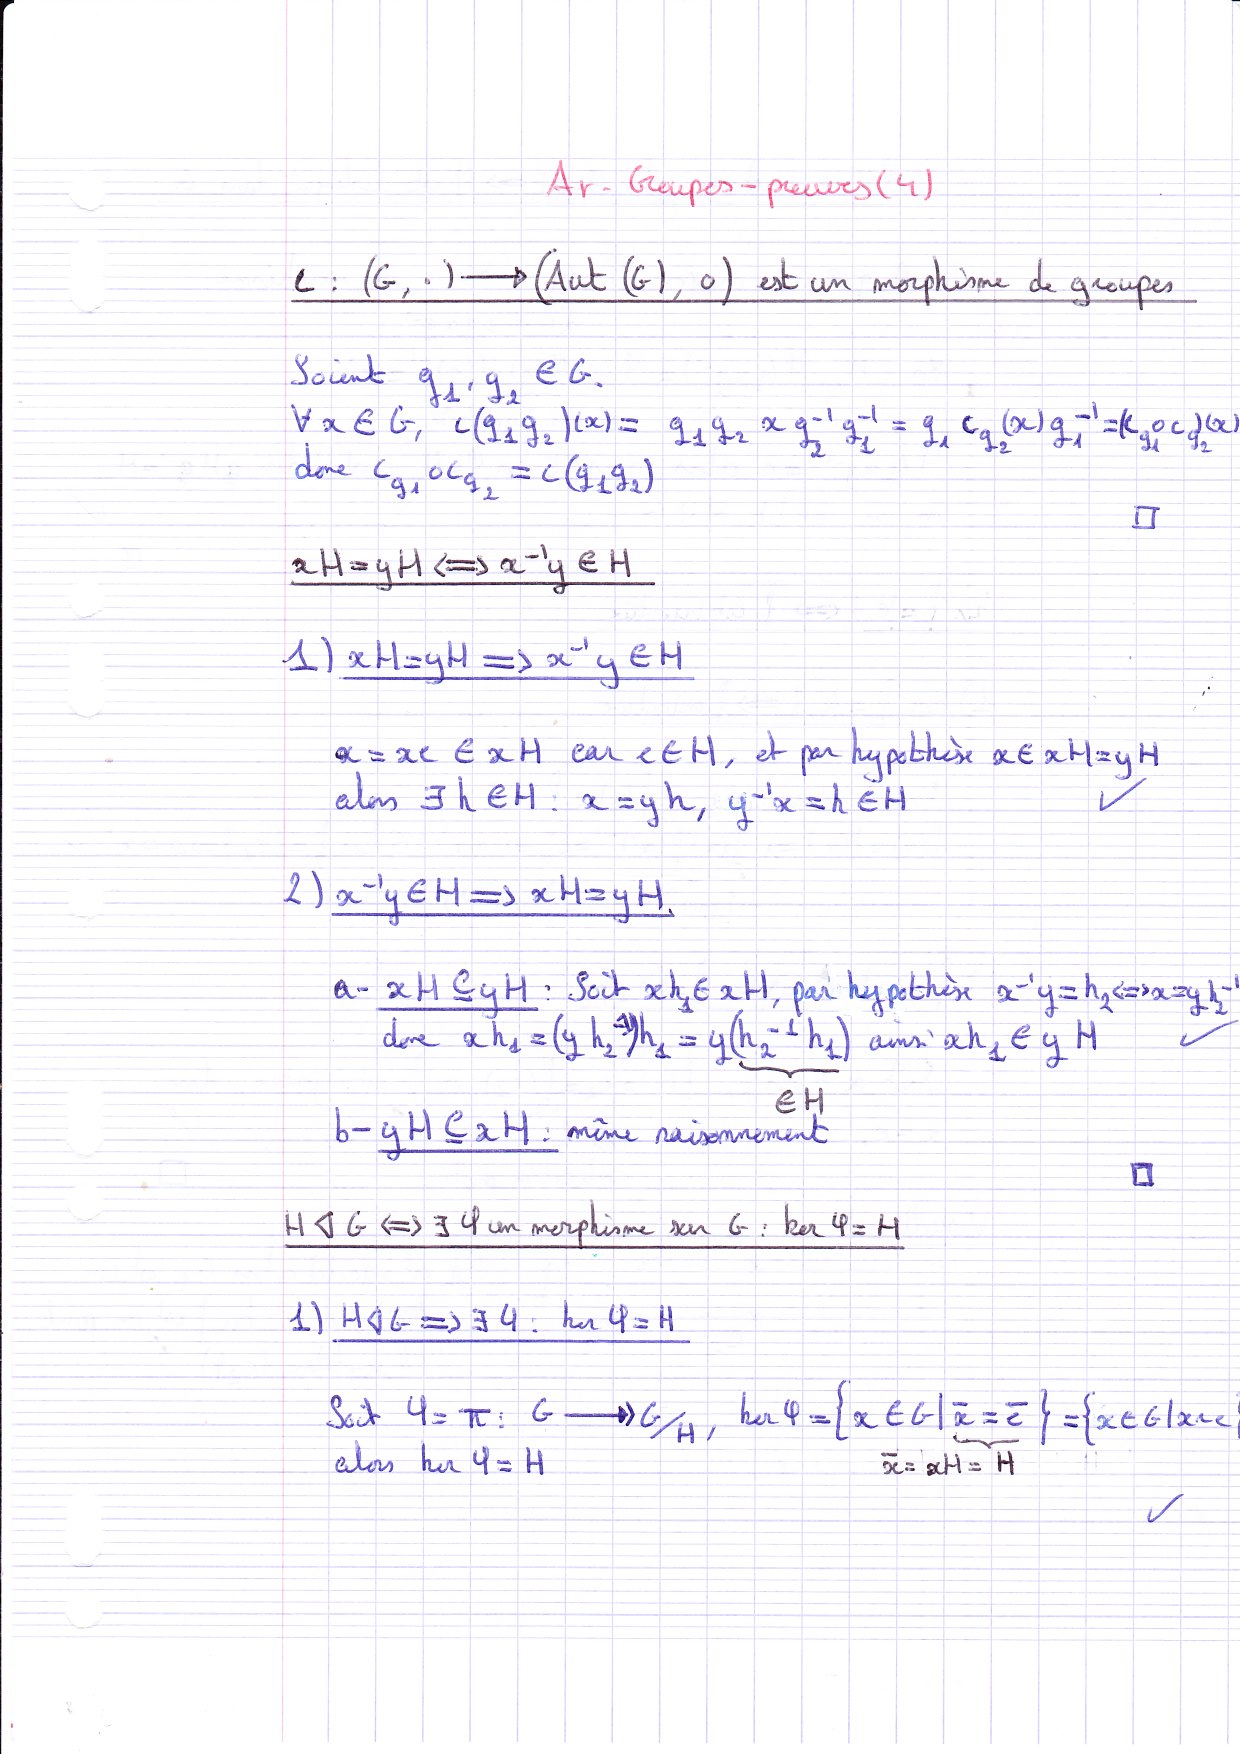 Ar - Groupes - preuves (4)
c : (G, .) ⟶ (Aut (G), o) est un morphisme de groupes
Soient g₁, g₂ ∈ G.
∀ x ∈ G, c(g₁g₂)(x) = g₁g₂ x g₂⁻¹g₁⁻¹ = g₁ c_g₂(x) g₁⁻¹ = (c_g₁ o c_g₂)(x)
donc c_g₁ o c_g₂ = c(g₁g₂)
□
xH = yH ⟺ x⁻¹y ∈ H
1) xH = yH ⟹ x⁻¹y ∈ H
x = xe ∈ xH car e ∈ H, et par hypothèse x ∈ xH = yH
alors ∃ h ∈ H : x = yh, y⁻¹x = h ∈ H ✓
2) x⁻¹y ∈ H ⟹ xH = yH.
a- xH ⊆ yH : Soit xh₁ ∈ xH, par hypothèse x⁻¹y = h₂ ⟺ x = yh₂⁻¹
donc xh₁ = (y h₂⁻¹)h₁ = y(h₂⁻¹ h₁) ainsi xh₁ ∈ yH ✓
∈ H
b- yH ⊆ xH : même raisonnement
□
H ◁ G ⟺ ∃ φ un morphisme sur G : ker φ = H
1) H ◁ G ⟹ ∃ φ : ker φ = H
Soit φ = π : G ↠ G/H, ker φ = {x ∈ G | x̄ = ē} = {x ∈ G | x ~ e}
x̄ = xH = H
alors ker φ = H
✓